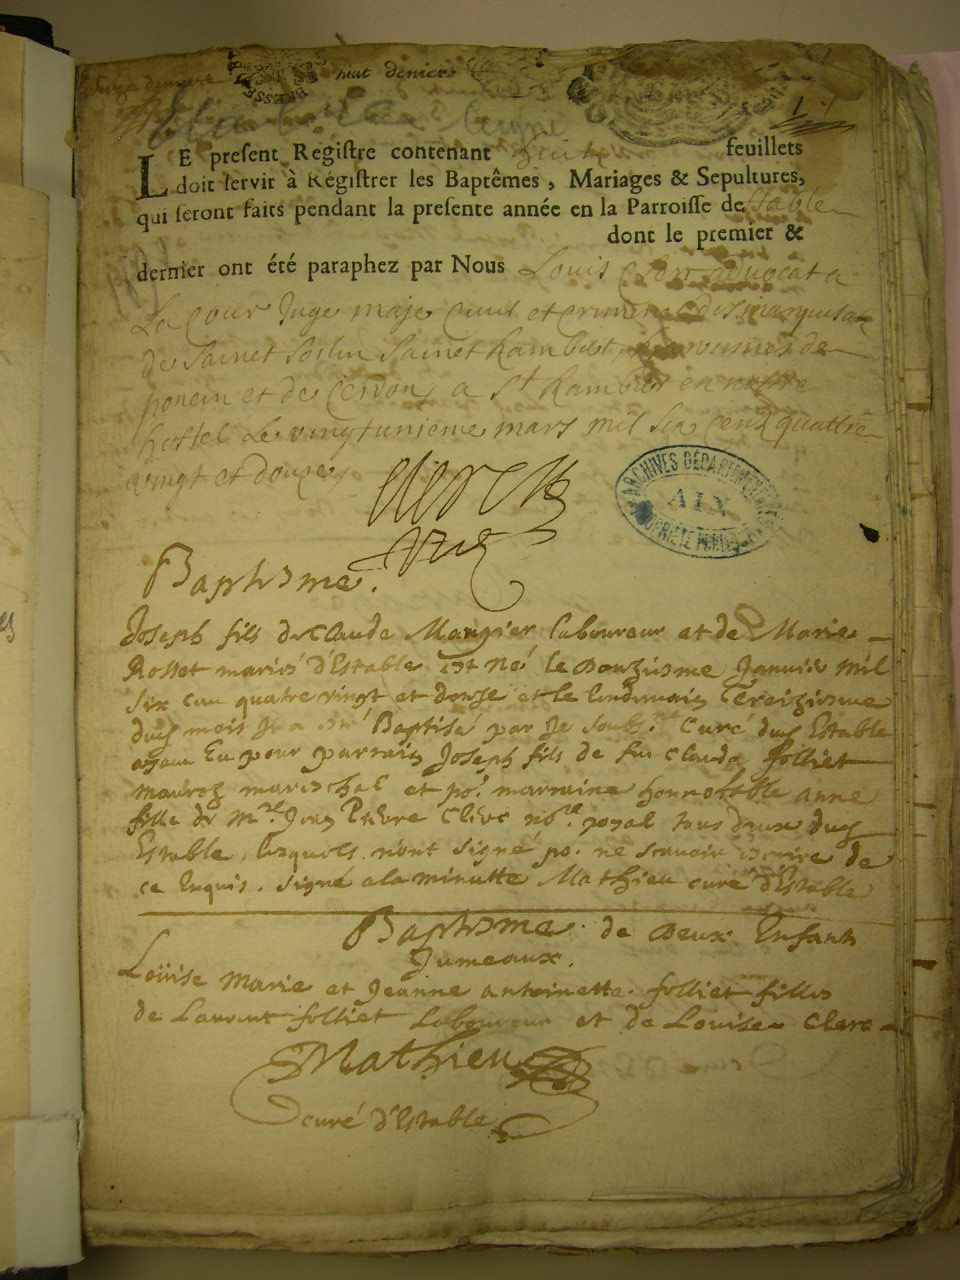 huit deniers
LE preſent Regiſtre contenant huit feuillets
doit ſervir à Régiſtrer les Baptêmes, Mariages & Sepultures,
qui ſeront faits pendant la preſente année en la Parroiſſe de Stable
dont le premier &
dernier ont été paraphez par Nous Louis Clerc advocat a
La Cour Juge maje Civil et criminel des marquisat
de Sainct Sorlin Sainct Rambert de
poncin et de Cerdon, a St Rambert en nostre
hostel Le vingtunieme mars mil six Cent quattre
vingt et douze
Clerc
Juge
ARCHIVES DÉPARTEMENTALES
AIN
PROPRIÉTÉ PUBLIQUE
Baptesme.
Joseph fils de Claude Mangier laboureur et de Marie
Rosset mariés d'Estable est né le douziesme Janvier mil
six cen quatre vingt et douze et le lendemain treiziesme
dud mois Il a esté Baptisé par je soubs. Curé dud Estable
ayant Eu pour parrain Joseph fils de feu Claude folliet
mareschal et po. marraine honnorable anne
fille de Mre Jean Clerc nore royal tous deux dud
Estable, lesquels n'ont signé po. ne scavoir escrire de
ce Enquis. signé a la minutte Mathieu curé d'Estable
Baptesme de deux Enfants
Jumeaux.
Loüise Marie et Jeanne antoinette folliet filles
de Laurent folliet Laboureur et de Louise Clerc
Mathieu
curé d'Estable